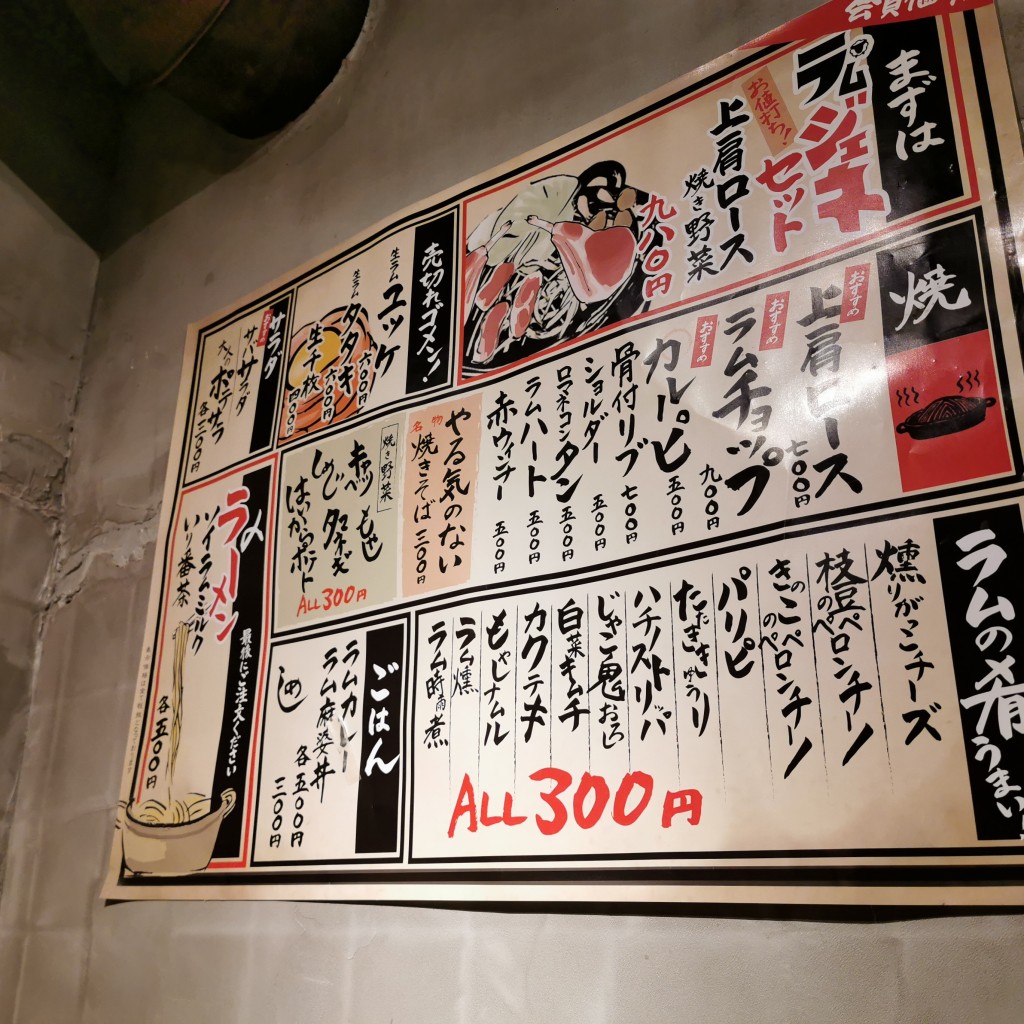 まずは
ラムジェネ
セット
お値打ち!
上肩ロース
焼き野菜
九八〇円
焼
おすすめ
上肩ロース
七〇〇円
おすすめ
ラムチョップ
九〇〇円
おすすめ
カルーピヒ
五〇〇円
骨付リブ
七〇〇円
ショルダー
五〇〇円
ロマネコンタン
五〇〇円
ラムハート
五〇〇円
赤ウィンナー
五〇〇円
ラムの肴うまい
燻りがっこチーズ
枝豆のペペロンチーノ
きのこのペペロンチーノ
パリピ
たたききゅうり
ハチノストリッパ
じゃこ鬼おろし
白菜キムチ
カクテキ
もやしナムル
ラム燻
ラム時雨煮
ALL 300円
売切れゴメン!
生ラムユッケ
六〇〇円
生ラムタタキ
六〇〇円
生千枚
四〇〇円
サラダ
おすすめ
サバサラダ
大人のポテサラ
各三〇〇円
やる気のない
名物
焼きそば
三〇〇円
焼き野菜
もやし
赤ベツ
タマネギ
しめじ
はいからポテト
ALL 300円
ごはん
ラムカレー
ラム麻婆丼
各五〇〇円
しめし
三〇〇円
〆のラーメン
最後にご注文ください
ソイラムミルク
いり番茶
各五〇〇円